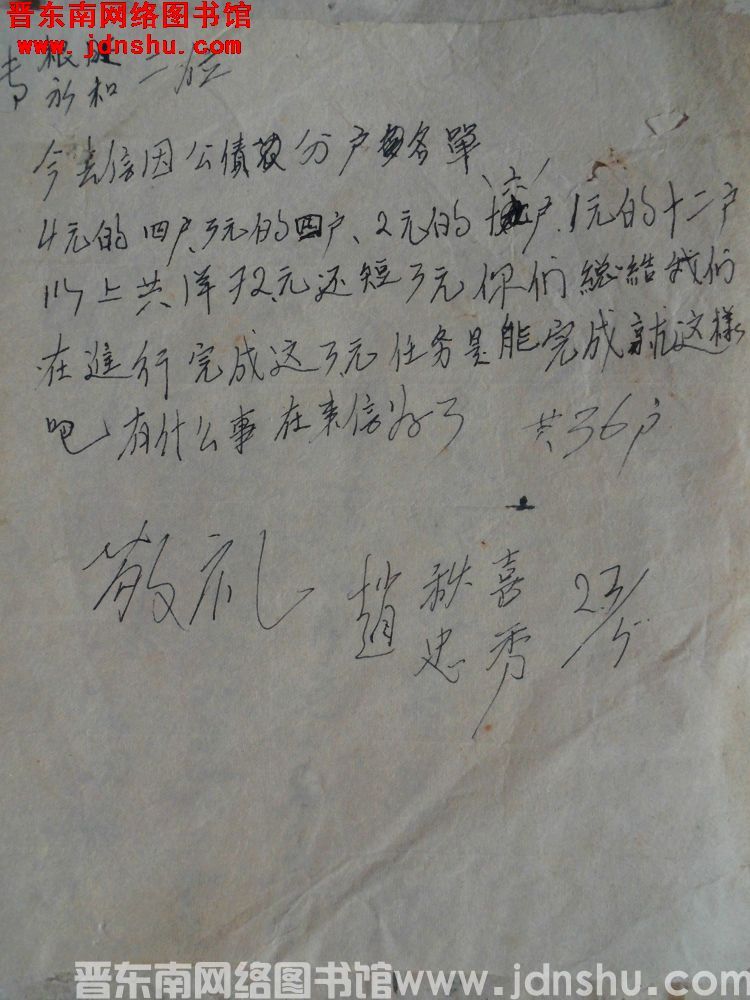 晋东南网络图书馆
www.jdnshu.com
根
永和 二位
今去信因公債款分户名單
4元的四户、3元的四户、2元的十六户、1元的十二户
以上共洋72元还短3元你们總結我们
在進行完成这3元任务是能完成就这樣
吧有什么事在来信为了 共36户
敬礼 趙 秋喜
忠秀 23/5
晋东南网络图书馆www.jdnshu.com